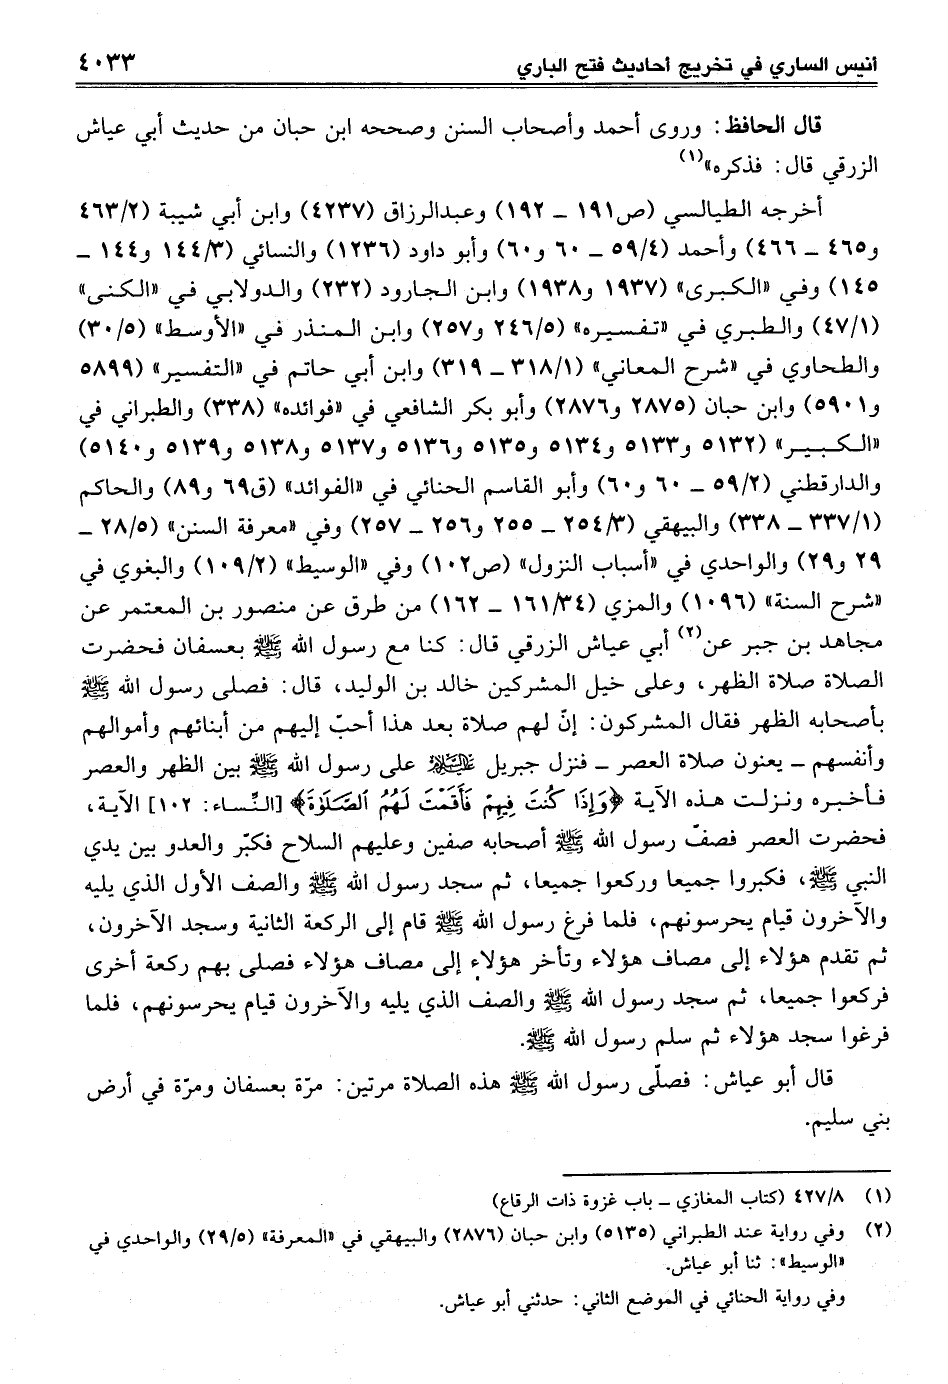 أنيس الساري في تخريج أحاديث فتح الباري ٤٠٣٣
قال الحافظ: وروى أحمد وأصحاب السنن وصححه ابن حبان من حديث أبي عياش
الزرقي قال: فذكره»(١)
أخرجه الطيالسي (ص١٩١ ـ ١٩٢) وعبدالرزاق (٤٢٣٧) وابن أبي شيبة (٤٦٣/٢
و٤٦٥ ـ ٤٦٦) وأحمد (٥٩/٤ ـ ٦٠ و٦٠) وأبو داود (١٢٣٦) والنسائي (١٤٤/٣ و١٤٤ ـ
١٤٥) وفي «الكبرى» (١٩٣٧ و١٩٣٨) وابن الجارود (٢٣٢) والدولابي في «الكنى»
(٤٧/١) والطبري في «تفسيره» (٢٤٦/٥ و٢٥٧) وابن المنذر في «الأوسط» (٣٠/٥)
والطحاوي في «شرح المعاني» (٣١٨/١ ـ ٣١٩) وابن أبي حاتم في «التفسير» (٥٨٩٩
و٥٩٠١) وابن حبان (٢٨٧٥ و٢٨٧٦) وأبو بكر الشافعي في «فوائده» (٣٣٨) والطبراني في
«الكبير» (٥١٣٢ و٥١٣٣ و٥١٣٤ و٥١٣٥ و٥١٣٦ و٥١٣٧ و٥١٣٨ و٥١٣٩ و٥١٤٠)
والدارقطني (٥٩/٢ ـ ٦٠ و٦٠) وأبو القاسم الحنائي في «الفوائد» (ق٦٩ و٨٩) والحاكم
(٣٣٧/١ ـ ٣٣٨) والبيهقي (٢٥٤/٣ ـ ٢٥٥ و٢٥٦ ـ ٢٥٧) وفي «معرفة السنن» (٢٨/٥ ـ
٢٩ و٢٩) والواحدي في «أسباب النزول» (ص١٠٢) وفي «الوسيط» (١٠٩/٢) والبغوي في
«شرح السنة» (١٠٩٦) والمزي (١٦١/٣٤ ـ ١٦٢) من طرق عن منصور بن المعتمر عن
مجاهد بن جبر عن(٢) أبي عياش الزرقي قال: كنا مع رسول الله ﷺ بعسفان فحضرت
الصلاة صلاة الظهر، وعلى خيل المشركين خالد بن الوليد، قال: فصلى رسول الله ﷺ
بأصحابه الظهر فقال المشركون: إنّ لهم صلاة بعد هذا أحبّ إليهم من أبنائهم وأموالهم
وأنفسهم ـ يعنون صلاة العصر ـ فنزل جبريل عليه السلام على رسول الله ﷺ بين الظهر والعصر
فأخبره ونزلت هذه الآية ﴿وَإِذَا كُنتَ فِيهِمْ فَأَقَمْتَ لَهُمُ الصَّلَوٰةَ﴾ [النِّساء: ١٠٢] الآية،
فحضرت العصر فصفّ رسول الله ﷺ أصحابه صفين وعليهم السلاح فكبّر والعدو بين يدي
النبي ﷺ، فكبروا جميعا وركعوا جميعا، ثم سجد رسول الله ﷺ والصف الأول الذي يليه
والآخرون قيام يحرسونهم، فلما فرغ رسول الله ﷺ قام إلى الركعة الثانية وسجد الآخرون،
ثم تقدم هؤلاء إلى مصاف هؤلاء وتأخر هؤلاء إلى مصاف هؤلاء فصلى بهم ركعة أخرى
فركعوا جميعا، ثم سجد رسول الله ﷺ والصف الذي يليه والآخرون قيام يحرسونهم، فلما
فرغوا سجد هؤلاء ثم سلم رسول الله ﷺ.
قال أبو عياش: فصلّى رسول الله ﷺ هذه الصلاة مرتين: مرّة بعسفان ومرّة في أرض
بني سليم.
(١) ٤٢٧/٨ (كتاب المغازي ـ باب غزوة ذات الرقاع)
(٢) وفي رواية عند الطبراني (٥١٣٥) وابن حبان (٢٨٧٦) والبيهقي في «المعرفة» (٢٩/٥) والواحدي في
«الوسيط»: ثنا أبو عياش.
وفي رواية الحنائي في الموضع الثاني: حدثني أبو عياش.